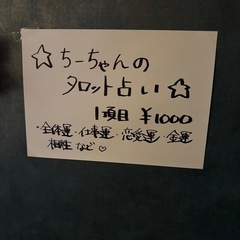 ☆ちーちゃんの
タロット占い☆
1項目 ¥1000
・全体運・仕事運・恋愛運・金運
相性など♡